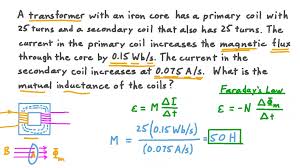 A transformer with an iron core has a primary coil with
25 turns and a secondary coil that also has 25 turns. The
current in the primary coil increases the magnetic flux
through the core by 0.15 Wb/s. The current in the
secondary coil increases at 0.075 A/s. What is the
mutual inductance of the coils?
Faraday's Law
ε = M ΔI/Δt
ε = -N ΔΦm/Δt
M = 25(0.15 Wb/s)/(0.075 A/s) = 50 H
B
Φm